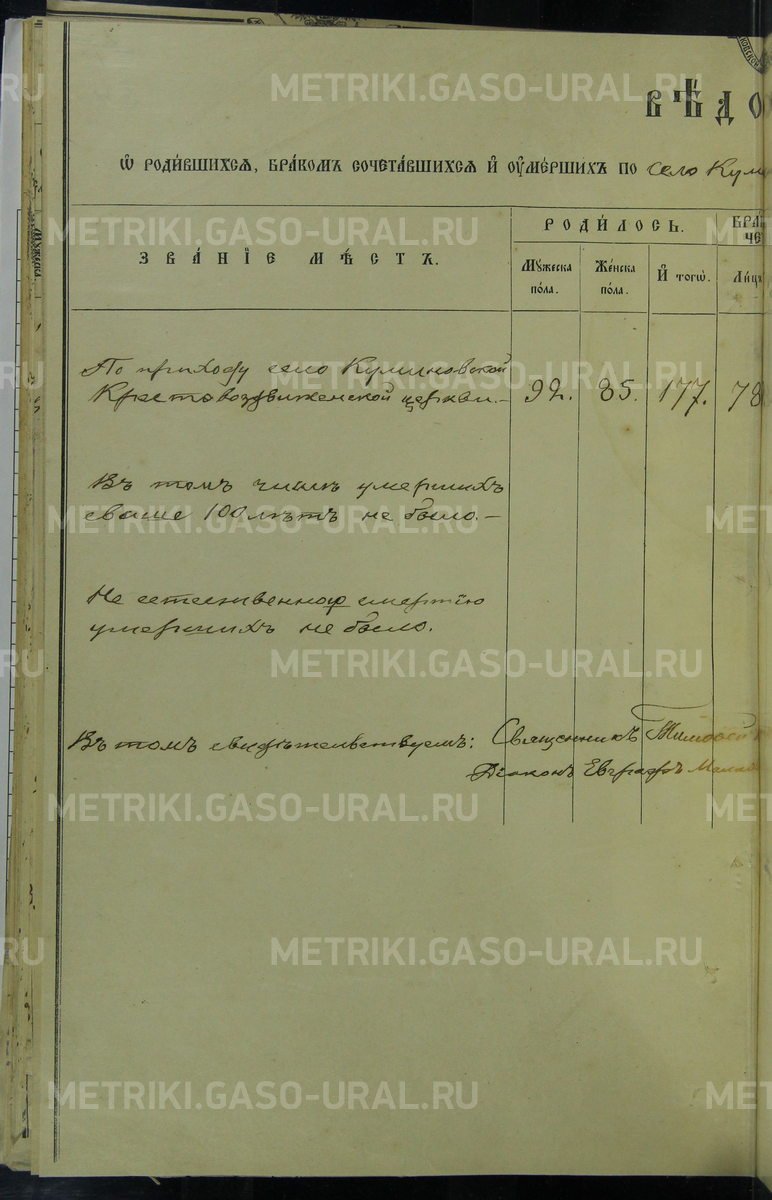 ВѢДО
Ѡ РОДИ́ВШИХСѦ, БРА́КОМЪ СОЧЕТА́ВШИХСѦ И҆ ОУ҆МЕ́РШИХЪ ПО село Кули
ЗВА́НЇЕ МѢ́СТЪ.
РОДИ́ЛОСЬ.
БРА
ЧЕ
Мꙋ́жеска по́ла.
Же́нска по́ла.
И҆ тогѡ̀.
Лицъ
По приходу село Кулиновской
Крестовоздвиженской церкви.— 92. 85. 177. 78
Въ томъ числѣ умершихъ
свыше 100 лѣтъ не было.—
Не естественною смертію
умершихъ не было.
Въ томъ свидѣтельствуемъ: Священникъ Тимофей
Діаконъ Евграфъ
METRIKI.GASO-URAL.RU